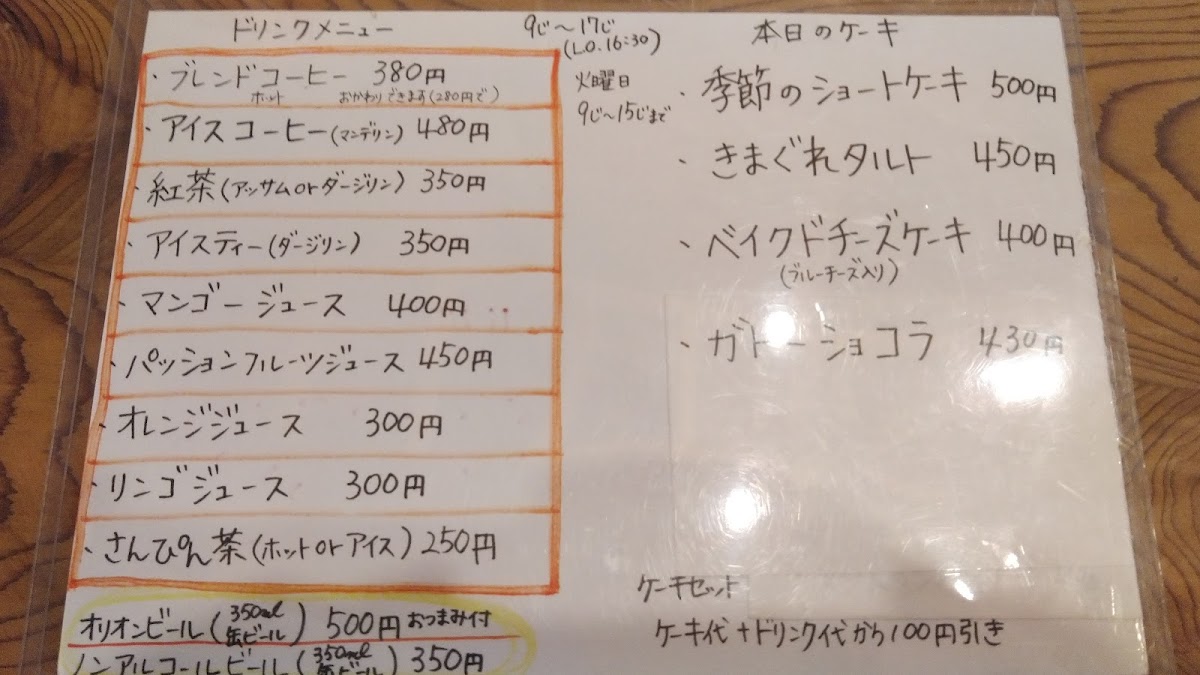 ドリンクメニュー
・ブレンドコーヒー 380円
ホット おかわりできます(280円で)
・アイスコーヒー(マンデリン) 480円
・紅茶(アッサムorダージリン) 350円
・アイスティー(ダージリン) 350円
・マンゴージュース 400円
・パッションフルーツジュース 450円
・オレンジジュース 300円
・リンゴジュース 300円
・さんぴん茶(ホットorアイス) 250円
オリオンビール(350ml 缶ビール) 500円 おつまみ付
ノンアルコールビール(350ml 缶ビール) 350円
9じ〜17じ
(L.O.16:30)
火曜日
9じ〜15じまで
本日のケーキ
・季節のショートケーキ 500円
・きまぐれタルト 450円
・ベイクドチーズケーキ 400円
(ブルーチーズ入り)
・ガトーショコラ 430円
ケーキセット
ケーキ代+ドリンク代から100円引き